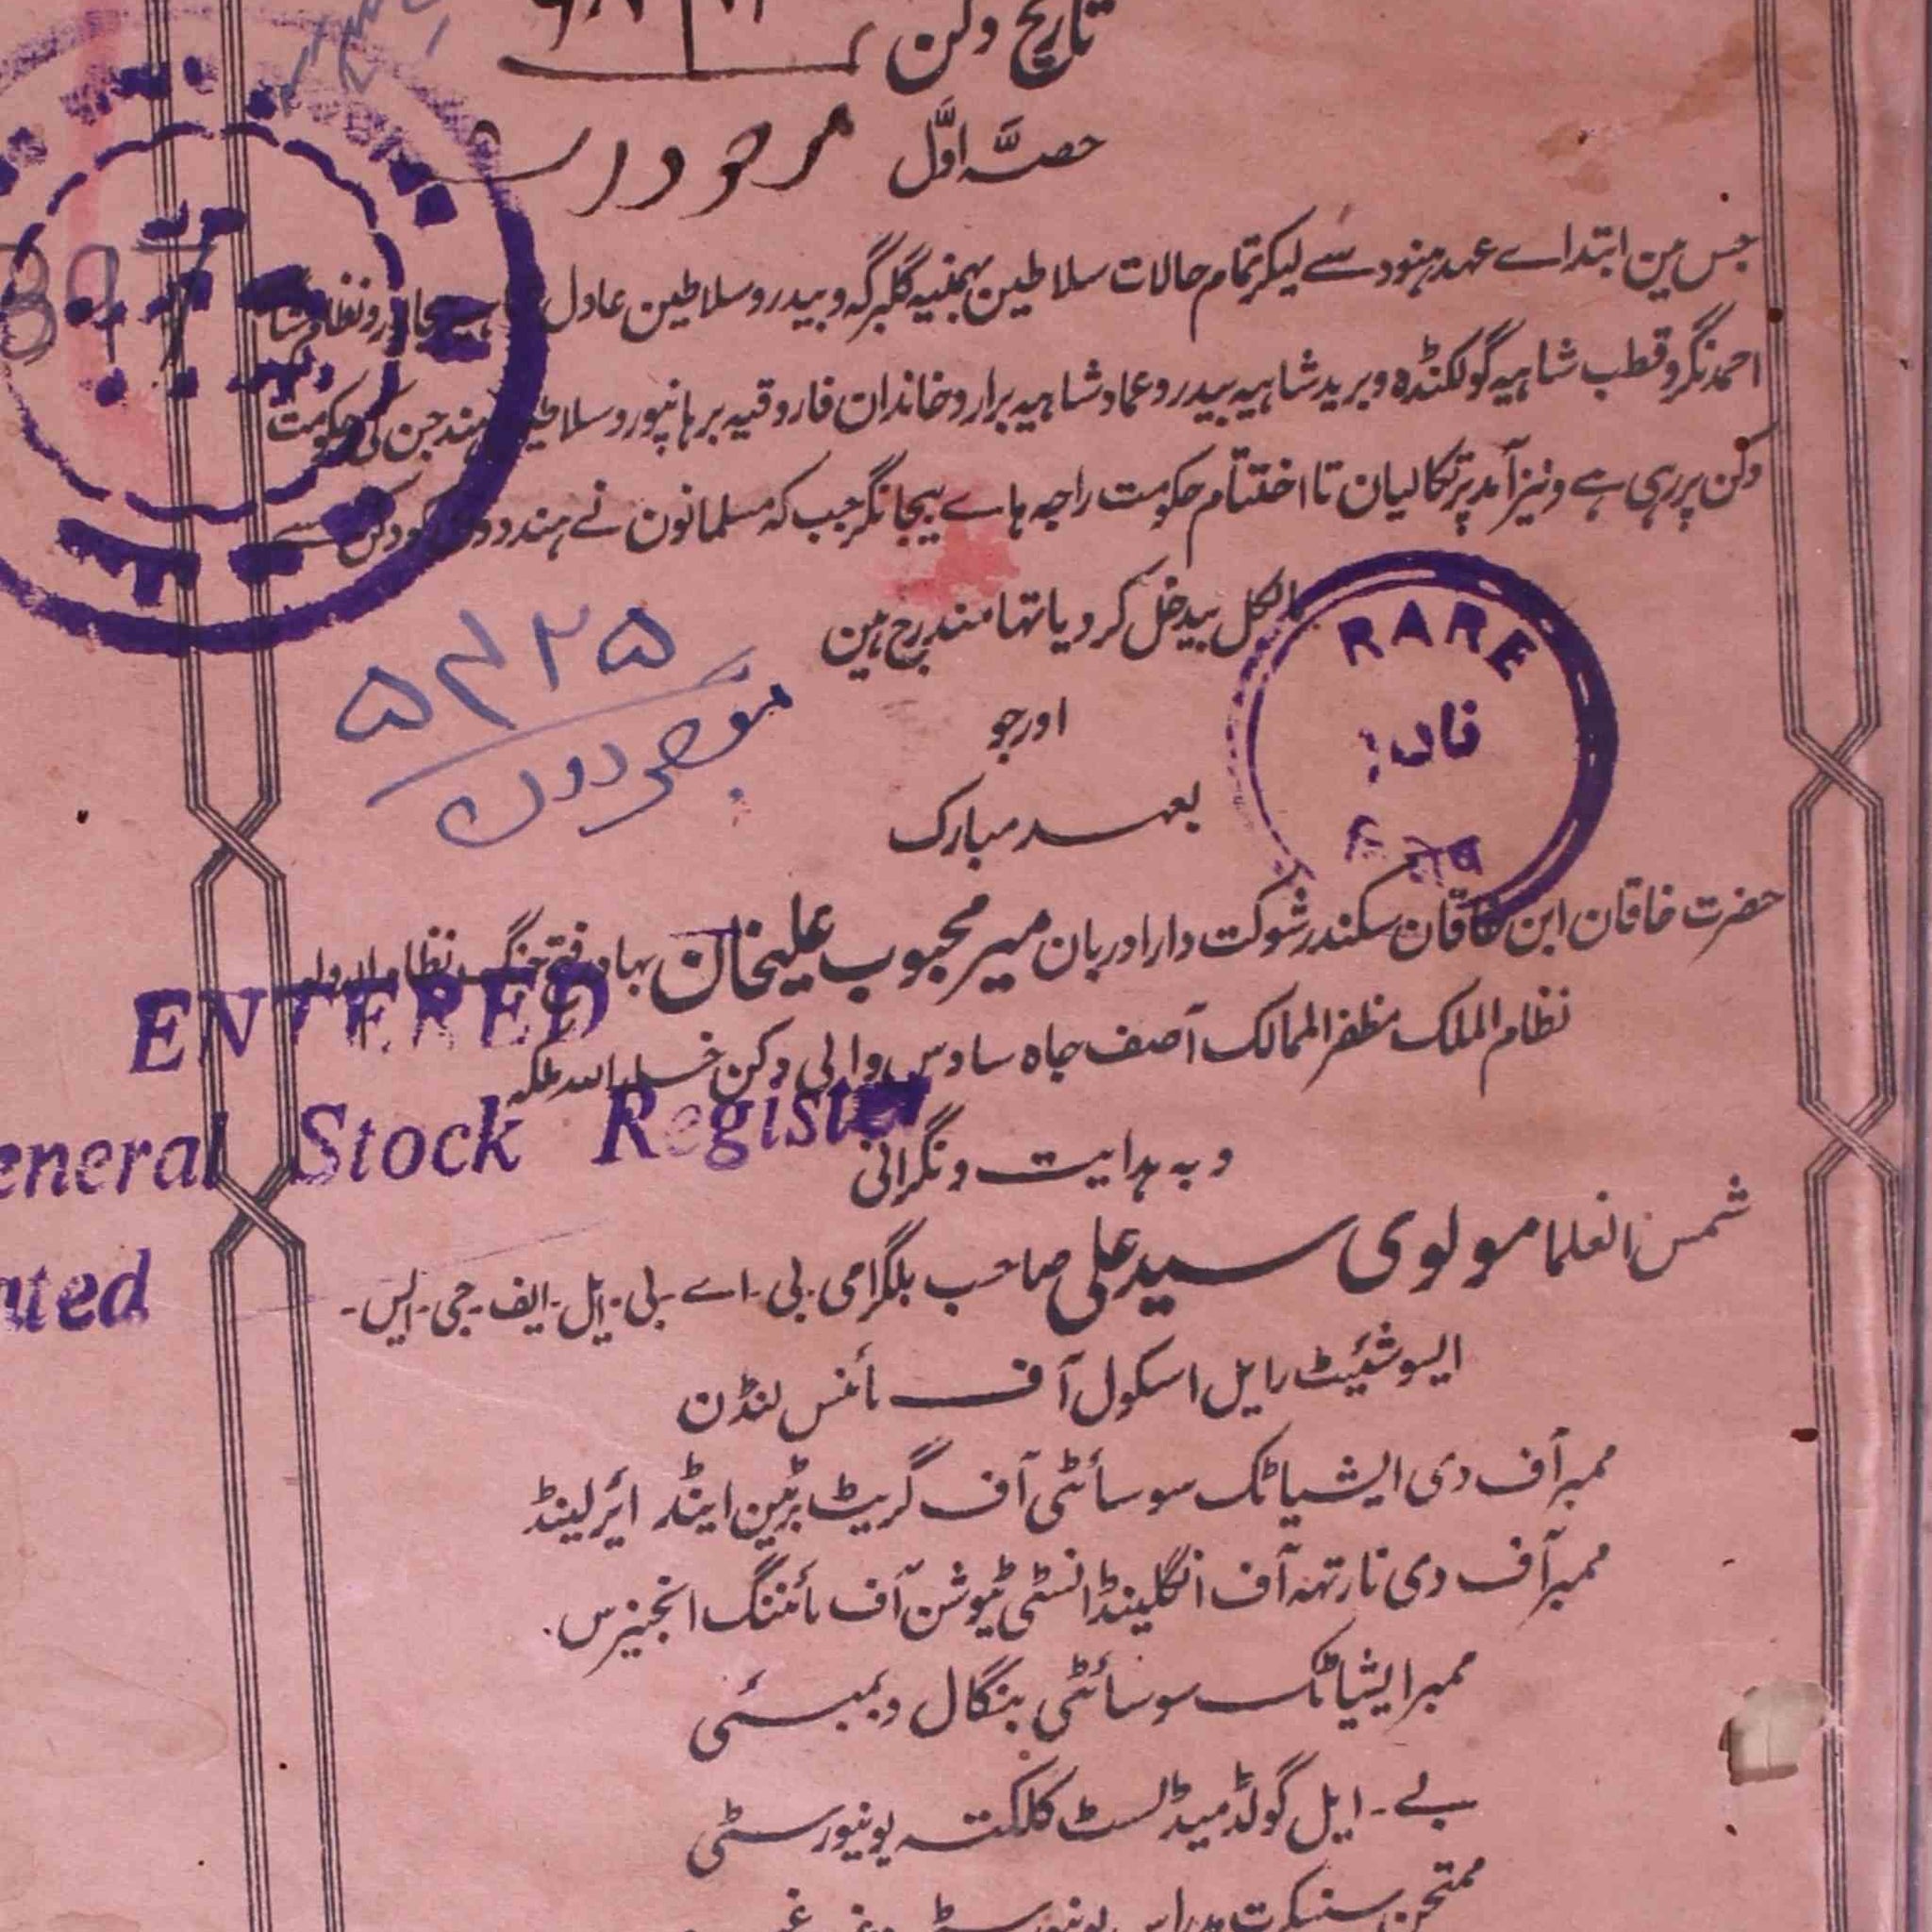 تاریخ دکن
حصّہ اوّل
جس مین ابتداے عہد ہنود سے لیکر تمام حالات سلاطین بہمنیہ گلبرگہ و بیدر و سلاطین عادل
احمد نگر و قطب شاہیہ گولکنڈہ و برید شاہیہ بیدر و عماد شاہیہ برار و خاندان فاروقیہ برہانپور و سلاطین ہند جن کی حکومت
دکن پر رہی ہے و نیز آمد پرتگالیان تا اختتام حکومت راجہ ہاے بیجانگر جب کہ مسلمانون نے ہندوون کو دکن سے
بالکل بیدخل کردیا تہا مندرج ہین
RARE
۵۴۲۵
اور جو
بعہد مبارک
حضرت خاقان ابن خاقان سکندر شوکت دارا دربان میر محبوب علیخان بہادر فتح جنگ نظام الدولہ
ENTERED
نظام الملک مظفر الممالک آصف جاہ سادس والی دکن خلد اللہ ملکہ
eneral Stock Register
و بہ ہدایت و نگرانی
شمس العلما مولوی سید علی صاحب بلگرامی بی-اے-بی-ایل-ایف-جی-ایس-
ated
ایسوشئیٹ رایل اسکول آف مائنس لنڈن
ممبر آف دی ایشیاٹک سوسائٹی آف گریٹ برٹین اینڈ ائرلینڈ
ممبر آف دی نارتہہ آف انگلینڈ انسٹی ٹیوشن آف مائننگ انجینرس.
ممبر ایشیاٹک سوسائٹی بنگال و بمبئی
بے-ایل گولڈ میڈلسٹ کلکتہ یونیورسٹی
ممتحن سنسکرت مدراس یونیورسٹی وغیرہ